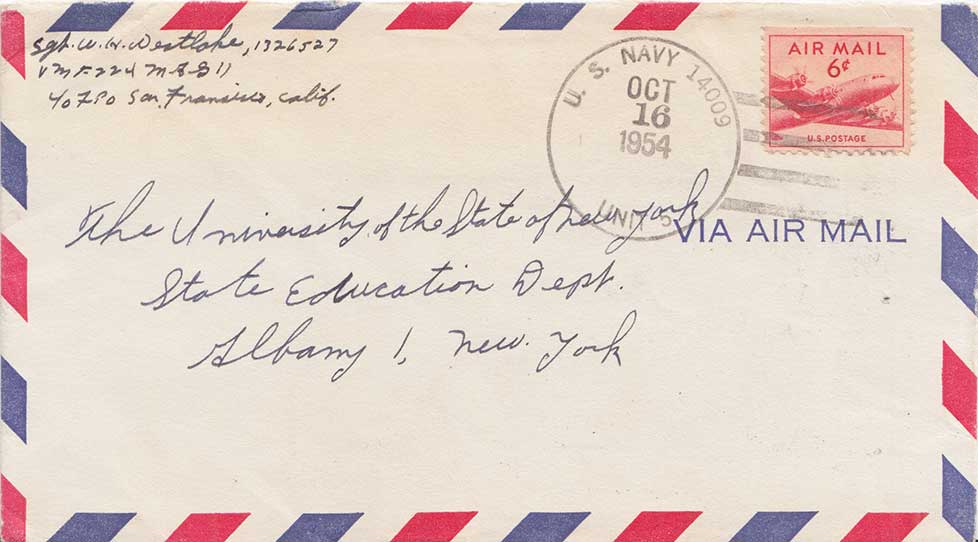 Sgt. W. W. Westlake, 1326527
VMF-224 MAG 11
c/o FPO San Fransisco, Calif.
U. S. NAVY 14009
OCT
16
1954
UNIT 5
AIR MAIL
6¢
U.S. POSTAGE
The University of the State of new York
VIA AIR MAIL
State Education Dept.
Albany 1, new York